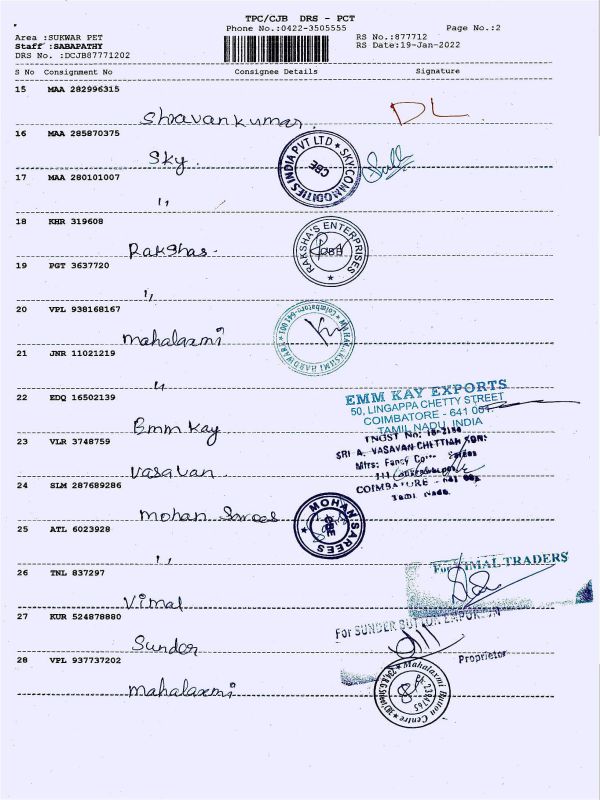 TPC/CJB DRS - PCT
Phone No.:0422-3505555
Page No.:2
Area :SUKWAR PET
RS No.:877712
Staff :SABAPATHY
RS Date:19-Jan-2022
DRS No. :DCJB87771202
S No Consignment No Consignee Details Signature
15 MAA 282996315
Shravankumar. DL.
16 MAA 285870375
Sky. SKY COMMODITIES INDIA PVT LTD CBE
17 MAA 280101007
"
18 KHR 319608
Rakshas RAKSHA'S ENTERPRISES CBE
19 PGT 3637720
"
20 VPL 938168167
mahalaxmi
21 JNR 11021219
"
22 EDQ 16502139
EMM KAY EXPORTS
50, LINGAPPA CHETTY STREET
COIMBATORE - 641 001.
TAMIL NADU, INDIA
Emm Kay
23 VLR 3748759
TNGST No.
SRI A. VASAVAN CHETTIAR SONS
Mfrs: Fancy Sarees
COIMBATORE - 641 001
Tamil Nadu.
Vasavan
24 SLM 287689286
Mohan Sarees MOHAN SAREES CBE
25 ATL 6023928
"
26 TNL 837297
For VIMAL TRADERS
Vimal
27 KUR 524878880
For SUNDER BUTTON EMPORIUM
Sunder
Proprietor
28 VPL 937737202
mahalaxmi Mahalaxmi Button Centre